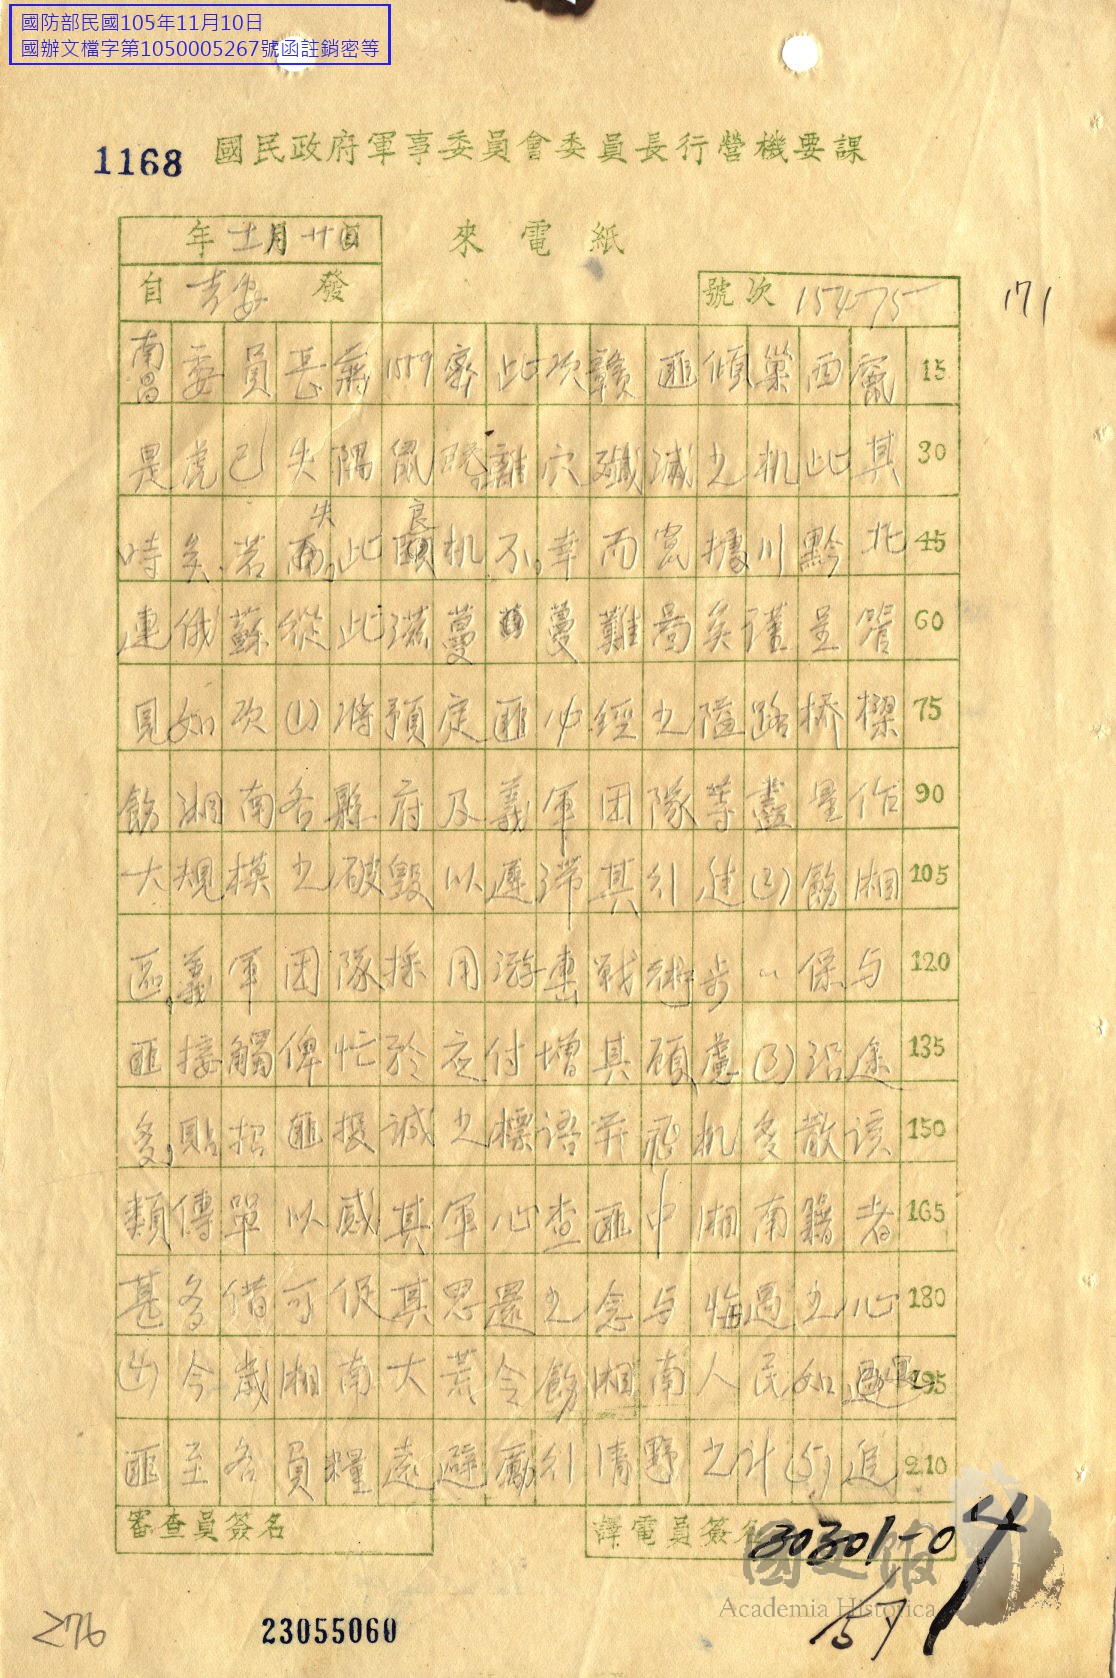 國防部民國105年11月10日
國辦文檔字第1050005267號函註銷密等
1168 國民政府軍事委員會委員長行營機要課
年十一月廿日 來電紙
自吉安發 號次 15475 171
南昌委員長蔣1579密此次贛匪傾巢西竄 15
是虎已失隅鼠既離穴殲滅之机此其 30
時矣若失此良机不幸而竄據川黔北 45
連俄蘇從此滋蔓蔓難啚矣謹呈管 60
見如次(1)將預定匪必經之隘路桥樑 75
飭湘南各縣府及義軍团隊等盡量作 90
大規模之破毀以遲滯其引進(2)飭湘 105
區義軍团隊採用游擊戦術步〃保与 120
匪接觸俾忙於应付增其顧慮(3)沿途 135
多貼招匪投誠之標语并飛机多散该 150
類傳單以感其軍心查匪中湘南籍者 165
甚多借可促其思還之念与悔過之心 180
(4)今歲湘南大荒令飭湘南人民如遇 195
匪至各員糧遠避厲引清野之计(5)追 210
審查員簽名 譯電員簽名
30301-04
57
國史館
Academia Historica
276 23055060